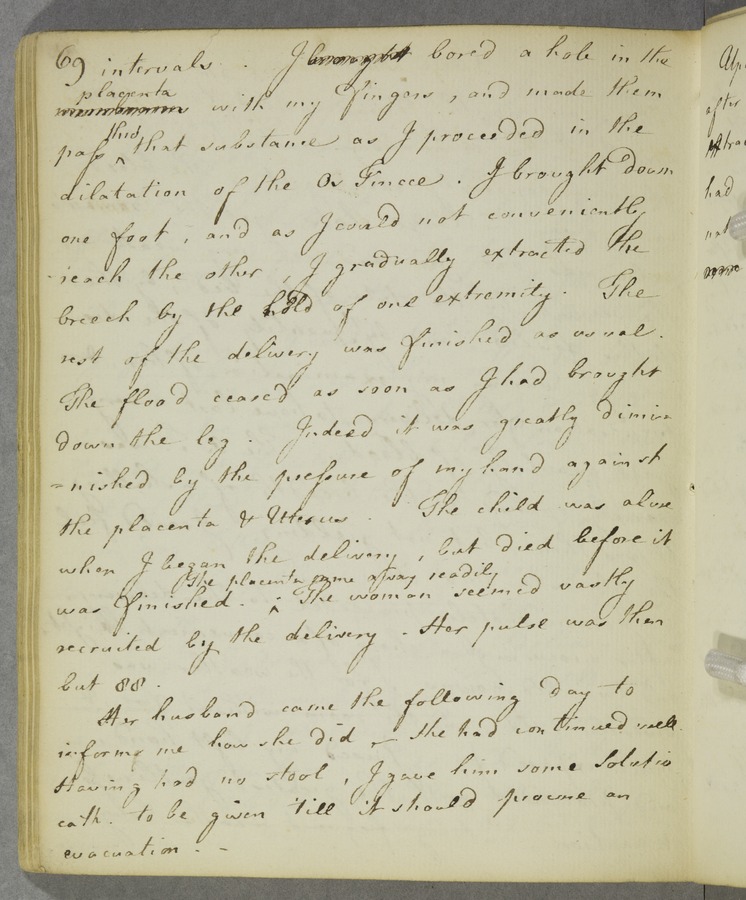 69 intervals. I brought bored a hole in the
placenta
membranes with my fingers, and made them
this
pass ^ that substance as I proceeded in the
dilatation of the Os Tincce. I brought down
one foot, and as I could not conveniently
reach the other, I gradually extracted the
breech by the hold of one extremity. The
rest of the delivery was finished as usual.
The flood ceased as soon as I had brought
down the leg. Indeed it was greatly dimi=
=nished by the pressure of my hand against
the placenta & Uterus. The child was alive
when I began the delivery, but died before it
The placenta came away readily
was finished. ^ The woman seemed vastly
recruited by the delivery. Her pulse was then
but 88.
Her husband came the following day to
inform me how she did - She had continued well.
Having had no stool, I gave him some Solutio
cath. to be given 'till it should procure an
evacuation. -
after
had